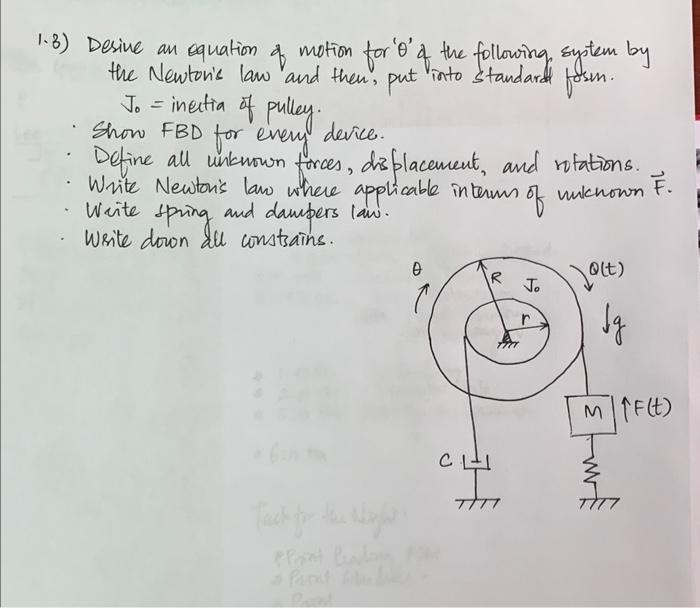 1.3) Desive an equation of motion for 'θ' of the following system by
the Newton's law and then, put into standard form.
J₀ = inertia of pulley.
· Show FBD for every device.
· Define all unknown forces, displacement, and rotations.
· Write Newton's law where applicable in terms of unknown F⃗.
· Write spring and dampers law.
· Write down all constrains.
θ
R
J₀
Q(t)
r
↓g
M ↑F(t)
C
Tach for the Night